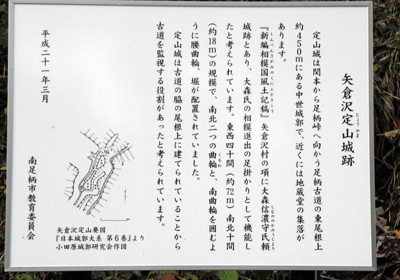 矢倉沢定山城跡
じょうやま
定山城は関本から足柄峠へ向かう足柄古道の東尾根上
約450mにある中世城郭で、近くには地蔵堂の集落が
あります。
『新編相模国風土記稿』矢倉沢村の項に大森信濃守氏頼
城跡とあり、大森氏の相模進出の足掛かりとして機能し
たと考えられています。東西四十間(約72m)南北十間
(約18m)の規模で、南北二つの曲輪と、南曲輪を囲むよ
うに腰曲輪、堀が配置されていました。
定山城は古道の脇の尾根上に建てられていることから
古道を監視する役割があったと考えられています。
平成二十一年三月
南足柄市教育委員会
矢倉沢定山要図
『日本城郭大系 第6巻』より
小田原城郭研究会作図